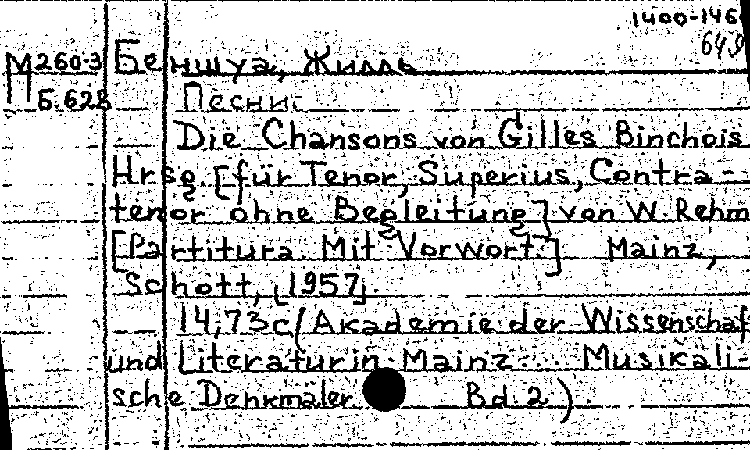 1400-146
649
М260-3 Беншуа, Жилль
Б.628 Песни.
Die Chansons von Gilles Binchois
Hrsg. [für Tenor, Superius, Contra-
tenor ohne Begleitung] von W. Rehm
[Partitura. Mit Vorwort.] Mainz,
Schott, [1957].
14,73c (Akademie der Wissenschaf
und Literatur in Mainz... Musikali-
sche Denkmäler Bd. 2).